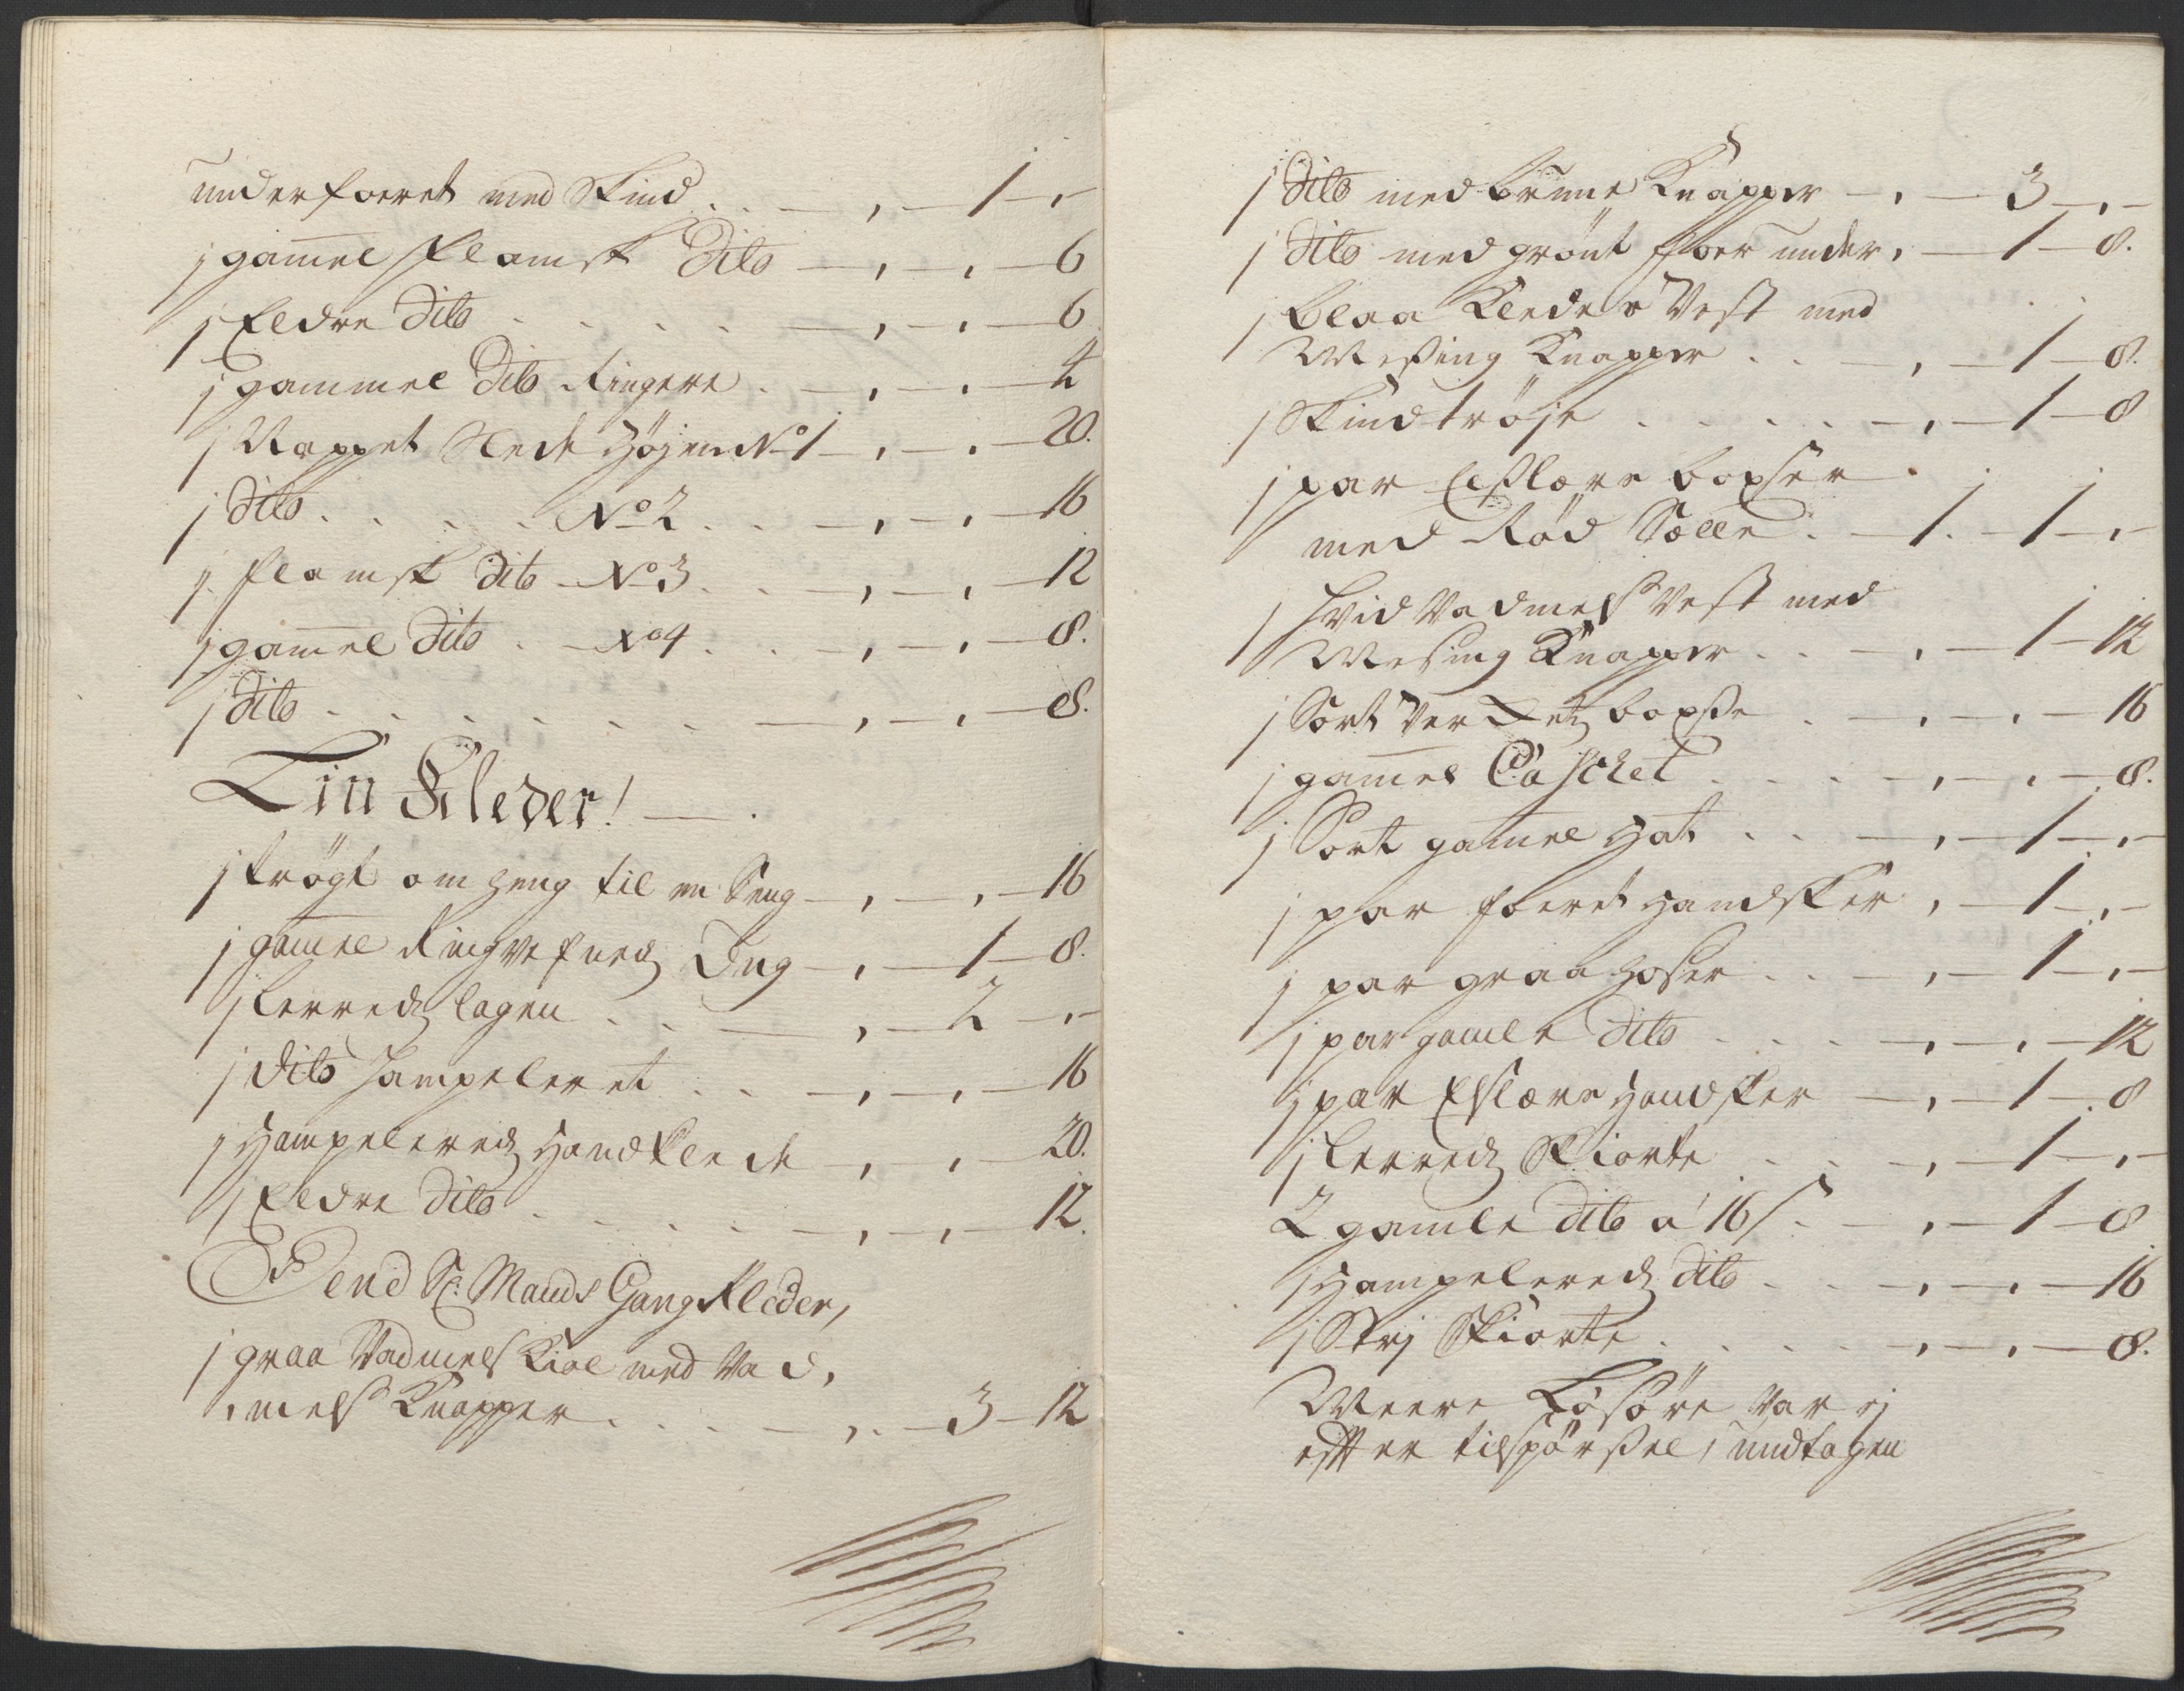 underforret med Skind . . — , — 1 — , —
1 gam̅el flamsk Dito — , — , — 6
1 Eldre Dito . . . . — , — , — 6
1 gammel Dito Ringere . — , — , — 4
1 Nappet Slede Højen No 1 — , — , — 20.
1 Dito . . . . No 2 . . — , — , — 16
1 flamsk Dito — No 3 . . — , — , — 12
1 gam̅el Dito . — No 4 . . — , — , — 8.
1 Dito . . . . . . — , — , — 8.
Lin Kleder! — .
1 trögt omheng til en Seng — , — , — 16
1 gam̅el Ringvefned — , — 1 — 8.
1 Lerreds lagen . . — , — 2 — , —
1 Dito Hampeleret . . — , — , — 16
1 Hampelereds Handklede — , , — 20.
1 Eldre Dito . . . . — , — , — 12.
Dend Sl: Mands Gang Kleder,
1 graa Vadmels Kiol med Vad,
mels Knapper . . . — , . — 3 — 12
1 Dito med brune Knapper — , — 3 — , —
1 Dito med grönt foer under , — 1 — 8.
1 blaa Kledes Vest med
Messing Knapper . . — , — 1 — 8.
1 Skind tröje . . . . — , — 1 — 8
1 par boxser
med Röd Sælle . — 1 . — 1 — , —
1 hvid Vadmels Vest med
Messing Knapper . . — , — 1 — 12
1 Sort boxse . — , — , — 16
1 gam̅el Caschet . . . — , — , — 8.
1 Sort gam̅el Hat . . — , — 1 — , —
1 par foeret Handsker , — 1 — , —
1 par graa Hoser . . — , — 1 — , —
1 par gamle Dito . . . — , — , — 12
1 par Handsker — , — 1 — 8
1 Lerreds Skiorte . . — , — 1 — , —
2 gamle Dito a 16 s . — , — 1 — 8
1 Hampelereds Dito . . — , — , — 16
1 Strj Skiorte . . . . — , — , — 8.
Meere Lösöre var ej
efter tilspørsel, undtagen